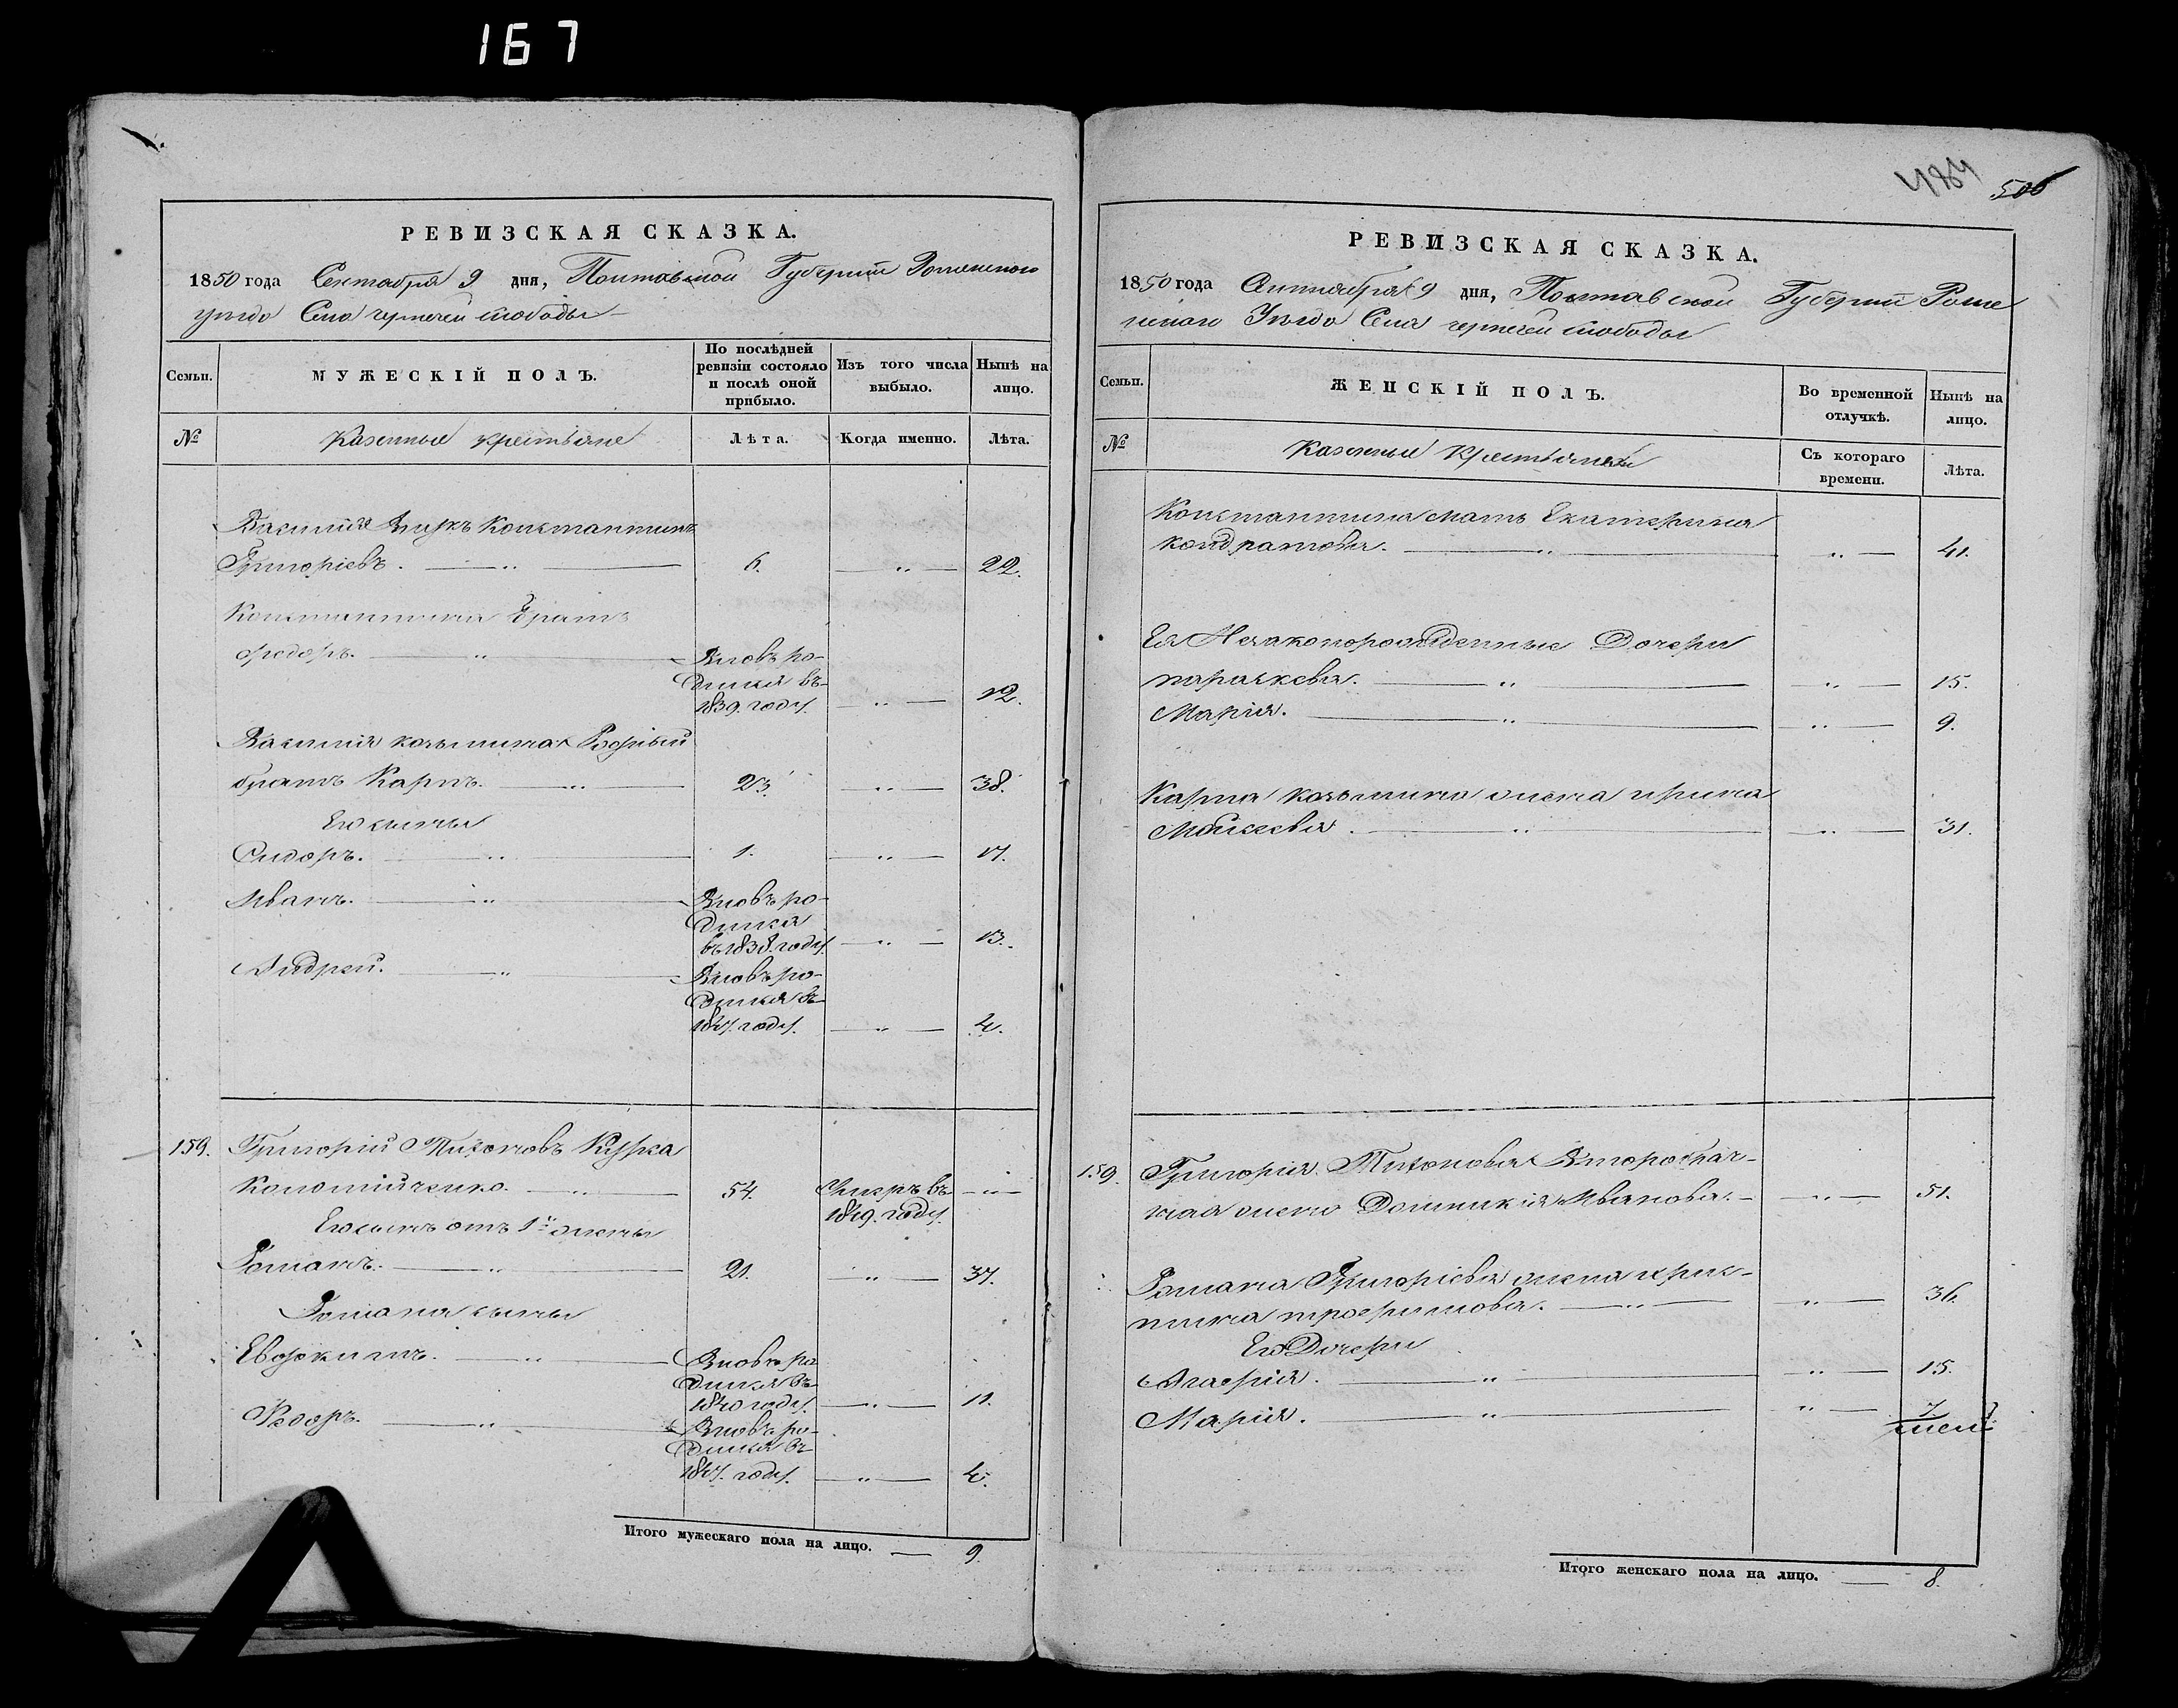 167
РЕВИЗСКАЯ СКАЗКА.
1850 года Сентября 9 дня, Полтавской Губерніи Роменского
уѣзда Села чернечей слободы
Семьи.
МУЖЕСКІЙ ПОЛЪ.
По послѣдней ревизіи состояло и послѣ оной прибыло.
Изъ того числа выбыло.
Нынѣ на лицо.
№
Казенные крестьяне
Лѣта.
Когда именно.
Лѣта.
Василія внукъ Константинъ
Григоріевъ. 6. 22.
Константина братъ
Федоръ. Вновь ро-
дился въ
1839. году. 12.
Василія козьмина Родный
братъ Карпъ. 23. 38.
Его сыны
Сидоръ. 1. 17.
Иванъ. Вновь ро-
дился
въ 1838. году. 13.
Андрей. Вновь ро-
дился въ
1847. году. 4.
159. Григорій Тихоновъ Курка
Коломійченко. 54. Умеръ въ
1849. году.
Его сынъ отъ 1й жены
Романъ. 21. 37.
Романа сыны
Евфокимъ. Вновь ро
дился въ
1840 году. 11.
Федоръ. Вновь ро-
дился въ
1847. году. 4.
Итого мужескаго пола на лицо. 9.
484 506
РЕВИЗСКАЯ СКАЗКА.
1850 года Сентября 9 дня, Полтавской Губерніи Роме
нского Уѣзда Села чернечей слободы
Семьи.
ЖЕНСКІЙ ПОЛЪ.
Во временной отлучкѣ.
Нынѣ на лицо.
№
Казенные Крестьянки
Съ котораго времени.
Лѣта.
Константина мать Екатерина
кондратова. 41.
Ея Незаконорожденные Дочери
параскева. 15.
Марія. 9.
Карпа козьмина жена ирина
Мойсеева. 31.
159. Григорія Тихонова второбрач-
ная жена Домникія Иванова. 51.
Романа Григоріева жена хрис-
тина трофимова. 36.
Его Дочери
Агафія. 15.
Марія. 7
Итого женскаго пола на лицо. 8.